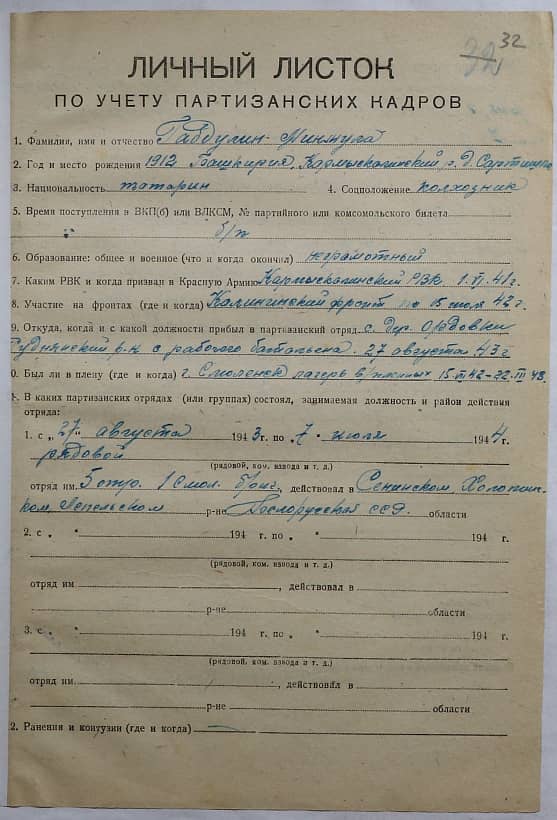 32
ЛИЧНЫЙ ЛИСТОК
ПО УЧЕТУ ПАРТИЗАНСКИХ КАДРОВ
1. Фамилия, имя и отчество Габдулин Минмула
2. Год и место рождения 1912 Башкирия, Кармыскалинский р. Д.
3. Национальность татарин 4. Соцположение колхозник
5. Время поступления в ВКП(б) или ВЛКСМ, № партийного или комсомольского билета
б/п
6. Образование: общее и военное (что и когда окончил) неграмотный
7. Каким РВК и когда призван в Красную Армию Кармыскалинский РВК 1.VI.41 г.
8. Участие на фронтах (где и когда) Калининский фронт по 15 июля 42 г.
9. Откуда, когда и с какой должности прибыл в партизанский отряд с дер. Ордовки
Руднянский р-н с рабочего батальена. 27 августа 43 г
0. Был ли в плену (где и когда) г. Смоленск лагерь в/пленных
1. В каких партизанских отрядах (или группах) состоял, занимаемая должность и район действия
отряда:
1. с „27" августа 1943 г. по „7" июля 1944 г.
рядовой
(рядовой, ком. взвода и т. д.)
отряд им. 5 отр. 1 Смол. бриг., действовал в Сенинском, Холопин-
ком, Лепельском р-не Белорусской ССР. области
2. с „ " 194 г. по „ " 194 г.
(рядовой, ком. взвода и т. д.)
отряд им , действовал в
р-не области
3. с „ " 194 г. по „ " 194 г.
(рядовой, ком. взвода и т. д.)
отряд им. , действовал в
р-не области
2. Ранения и контузии (где и когда) —